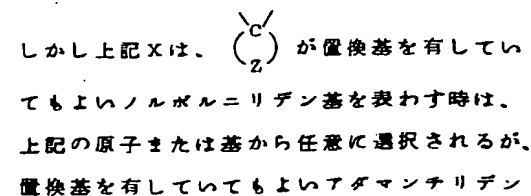 しかし上記Xは、(C Z)が置換基を有してい
てもよいノルボルニリデン基を表わす時は、
上記の原子または基から任意に選択されるが、
置換基を有していてもよいアダマンチリデン